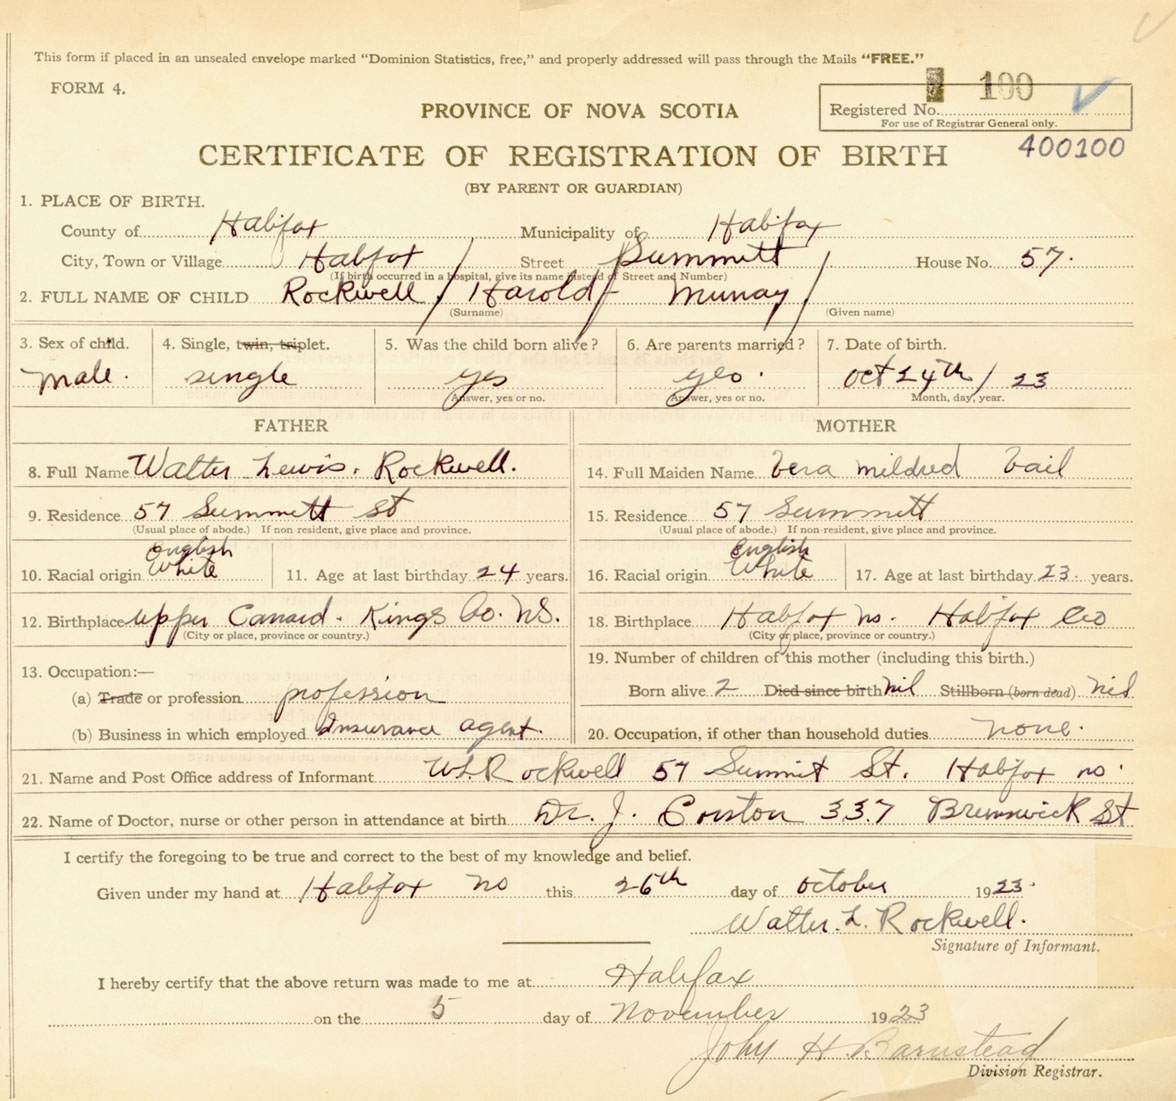 This form if placed in an unsealed envelope marked "Dominion Statistics, free," and properly addressed will pass through the Mails "FREE."
FORM 4.
100
PROVINCE OF NOVA SCOTIA
Registered No.
For use of Registrar General only.
CERTIFICATE OF REGISTRATION OF BIRTH
400100
(BY PARENT OR GUARDIAN)
1. PLACE OF BIRTH.
County of Halifax Municipality of Halifax
City, Town or Village Halifax Street Summitt House No. 57.
(If birth occurred in a hospital, give its name instead of Street and Number)
2. FULL NAME OF CHILD Rockwell / Harold Murray /
(Surname) (Given name)
3. Sex of child. 4. Single, twin, triplet. 5. Was the child born alive? 6. Are parents married? 7. Date of birth.
Male. single yes yes. Oct 24th / 23
Answer, yes or no. Answer, yes or no. Month, day, year.
FATHER MOTHER
8. Full Name Walter Lewis. Rockwell. 14. Full Maiden Name Vera Mildred Vail
9. Residence 57 Summett St 15. Residence 57 Summett
(Usual place of abode.) If non-resident, give place and province. (Usual place of abode.) If non-resident, give place and province.
English English
10. Racial origin White 11. Age at last birthday 24 years. 16. Racial origin White 17. Age at last birthday 23. years.
12. Birthplace Upper Canard. Kings Co. NS. 18. Birthplace Halifax NS. Halifax Co
(City or place, province or country.) (City or place, province or country.)
13. Occupation:— 19. Number of children of this mother (including this birth.)
(a) Trade or profession profession Born alive 2 Died since birth nil Stillborn (born dead) nil
(b) Business in which employed Insurance agent. 20. Occupation, if other than household duties none.
21. Name and Post Office address of Informant W L Rockwell 57 Summit St. Halifax NS.
22. Name of Doctor, nurse or other person in attendance at birth Dr. J. Corston 337 Brunswick St
I certify the foregoing to be true and correct to the best of my knowledge and belief.
Given under my hand at Halifax NS this 26th day of October 1923.
Walter. L. Rockwell.
Signature of Informant.
I hereby certify that the above return was made to me at Halifax
on the 5 day of November 1923
John H Barnstead
Division Registrar.